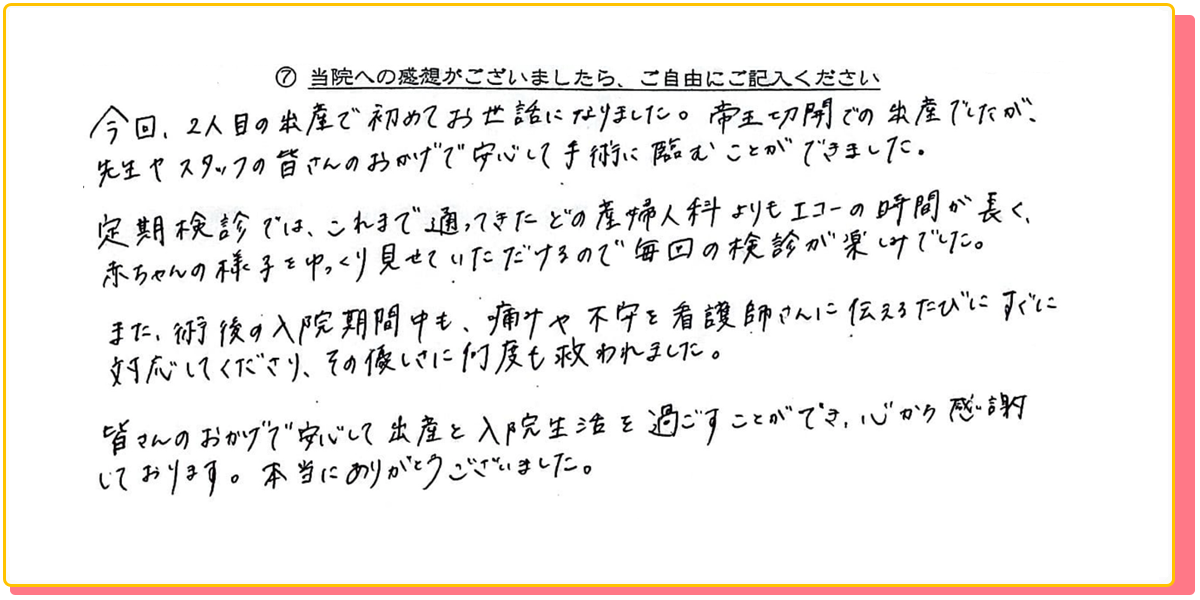 ⑦ 当院への感想がございましたら、ご自由にご記入ください
今回、2人目の出産で初めてお世話になりました。帝王切開での出産でしたが、
先生やスタッフの皆さんのおかげで安心して手術に臨むことができました。
定期検診では、これまで通ってきたどの産婦人科よりもエコーの時間が長く、
赤ちゃんの様子をゆっくり見せていただけるので毎回の検診が楽しみでした。
また、術後の入院期間中も、痛みや不安を看護師さんに伝えるたびにすぐに
対応してくださり、その優しさに何度も救われました。
皆さんのおかげで安心して出産と入院生活を過ごすことができ、心から感謝
しております。本当にありがとうございました。